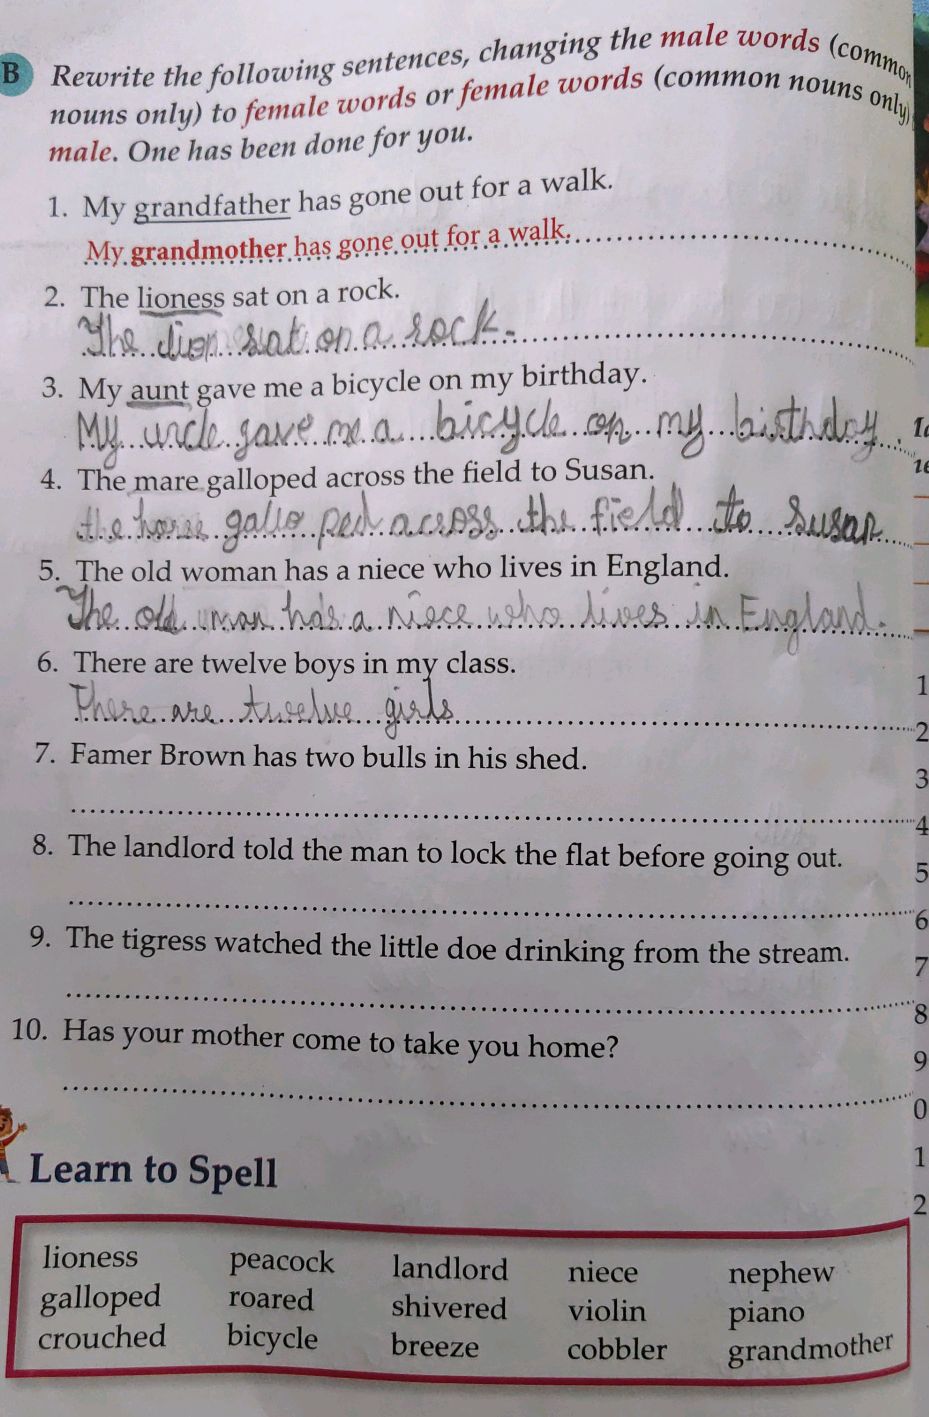 B Rewrite the following sentences, changing the male words (common
nouns only) to female words or female words (common nouns only)
male. One has been done for you.
1. My grandfather has gone out for a walk.
My grandmother has gone out for a walk.
2. The lioness sat on a rock.
The lion sat on a rock.
3. My aunt gave me a bicycle on my birthday.
My uncle gave me a bicycle on my birthday.
4. The mare galloped across the field to Susan.
the horse gallo ped across the field to Susan
5. The old woman has a niece who lives in England.
The old man has a niece who lives in England.
6. There are twelve boys in my class.
There are twelve girls
7. Famer Brown has two bulls in his shed.
8. The landlord told the man to lock the flat before going out.
9. The tigress watched the little doe drinking from the stream.
10. Has your mother come to take you home?
Learn to Spell
lioness peacock landlord niece nephew
galloped roared shivered violin piano
crouched bicycle breeze cobbler grandmother
1
2
3
4
5
6
7
8
9
0
1
2